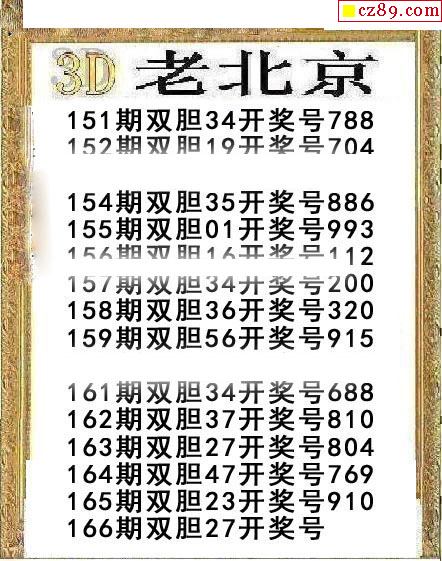 cz89.com
3D 老北京
151期双胆34开奖号788
152期双胆19开奖号704
154期双胆35开奖号886
155期双胆01开奖号993
156期双胆16开奖号112
157期双胆34开奖号200
158期双胆36开奖号320
159期双胆56开奖号915
161期双胆34开奖号688
162期双胆37开奖号810
163期双胆27开奖号804
164期双胆47开奖号769
165期双胆23开奖号910
166期双胆27开奖号